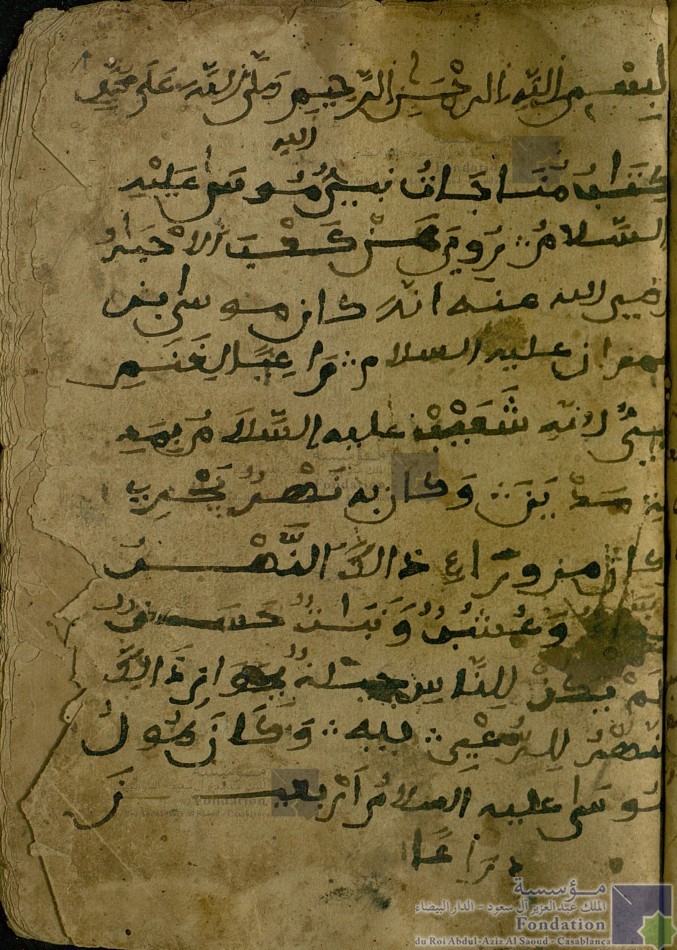 بسم الله الرحمن الرحيم وصلى الله على محمد
كتاب مناجات نبي الله موسى عليه
السلام رُوِيَ عن كعب الاحبار
رضي الله عنه انه كان موسى بن
عمران عليه السلام راعيا لغنم
نبي الله شعيب عليه السلام بمد
ين وكان به نهر يجري
كان من وراء ذالك النهر
وعشب ونبات حسن
لم يكن للناس ذالك
النهر للرعي فيه وكان طول
موسى عليه السلام اربعين
ذراعا
مؤسسة
الملك عبد العزيز آل سعود - الدار البيضاء
Fondation
du Roi Abdul-Aziz Al Saoud - Casablanca